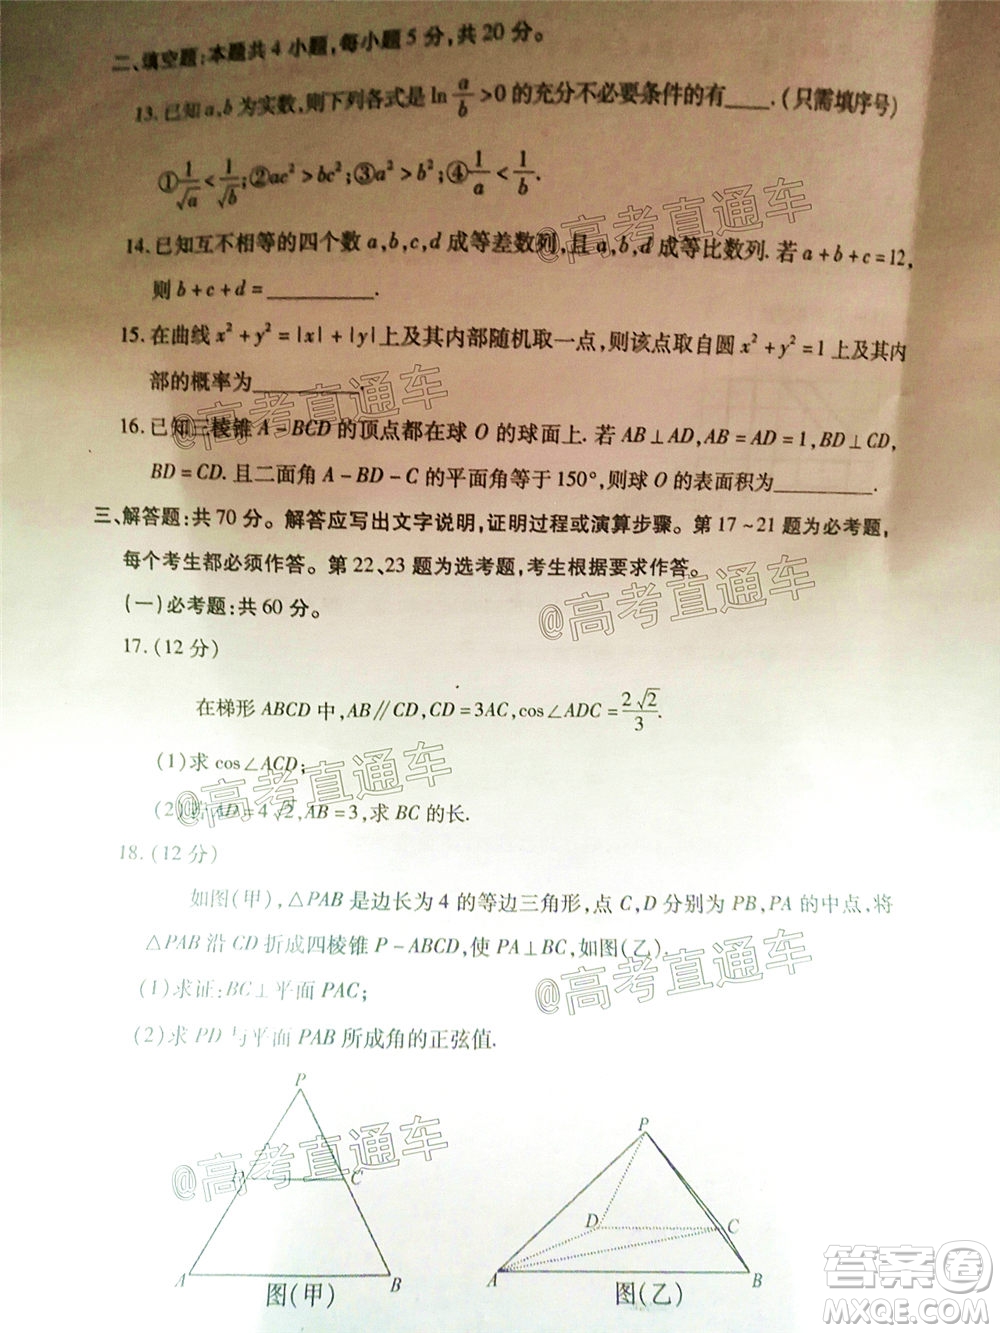 二、填空题:本题共4小题,每小题5分,共20分。
13.已知a,b为实数,则下列各式是ln a/b>0的充分不必要条件的有____.(只需填序号)
①1/√a<1/√b;②ac²>bc²;③a²>b²;④1/a<1/b.
@高考直通车
14.已知互不相等的四个数a,b,c,d成等差数列,且a,b,d成等比数列.若a+b+c=12,
则b+c+d=________.
15.在曲线x²+y²=|x|+|y|上及其内部随机取一点,则该点取自圆x²+y²=1上及其内
部的概率为________.
@高考直通车
16.已知三棱锥A-BCD的顶点都在球O的球面上.若AB⊥AD,AB=AD=1,BD⊥CD,
BD=CD.且二面角A-BD-C的平面角等于150°,则球O的表面积为________.
三、解答题:共70分。解答应写出文字说明,证明过程或演算步骤。第17~21题为必考题,
每个考生都必须作答。第22、23题为选考题,考生根据要求作答。
(一)必考题:共60分。
@高考直通车
17.(12分)
在梯形ABCD中,AB∥CD,CD=3AC,cos∠ADC=2√2/3.
(1)求cos∠ACD;
@高考直通车
(2)若AD=4√2,AB=3,求BC的长.
18.(12分)
如图(甲),△PAB是边长为4的等边三角形,点C,D分别为PB,PA的中点,将
△PAB沿CD折成四棱锥P-ABCD,使PA⊥BC,如图(乙).
@高考直通车
(1)求证:BC⊥平面PAC;
(2)求PD与平面PAB所成角的正弦值.
P
C
A
B
图(甲)
@高考直通车
P
D
C
A
B
图(乙)
答案圈
MXQE.COM